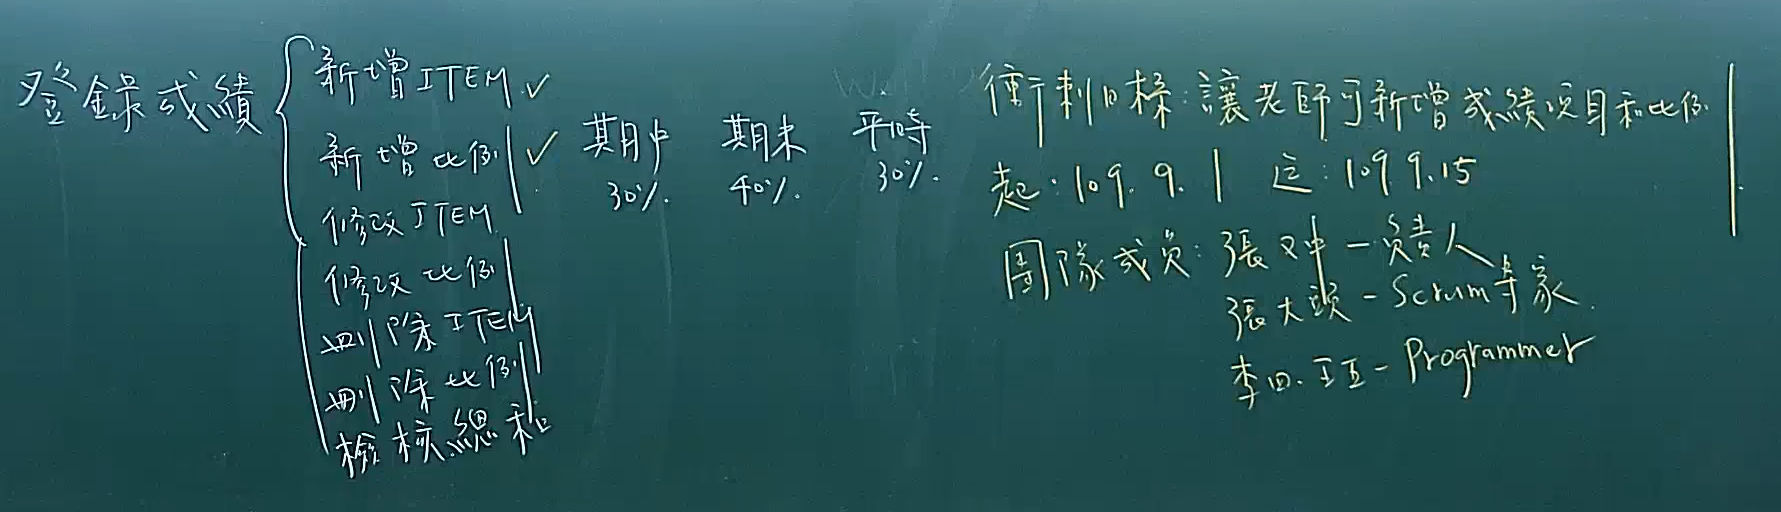 登錄成績
新增ITEM ✓
新增比例 ✓
修改ITEM
修改比例
刪除ITEM
刪除比例
檢核總和
期中 期末 平時
30% 40% 30%
衝刺目標:讓老師可新增成績項目和比例
起:109.9.1 迄:109 9.15
團隊成員:張文中-負責人
張大頭-Scrum專家
李四.王五-Programmer